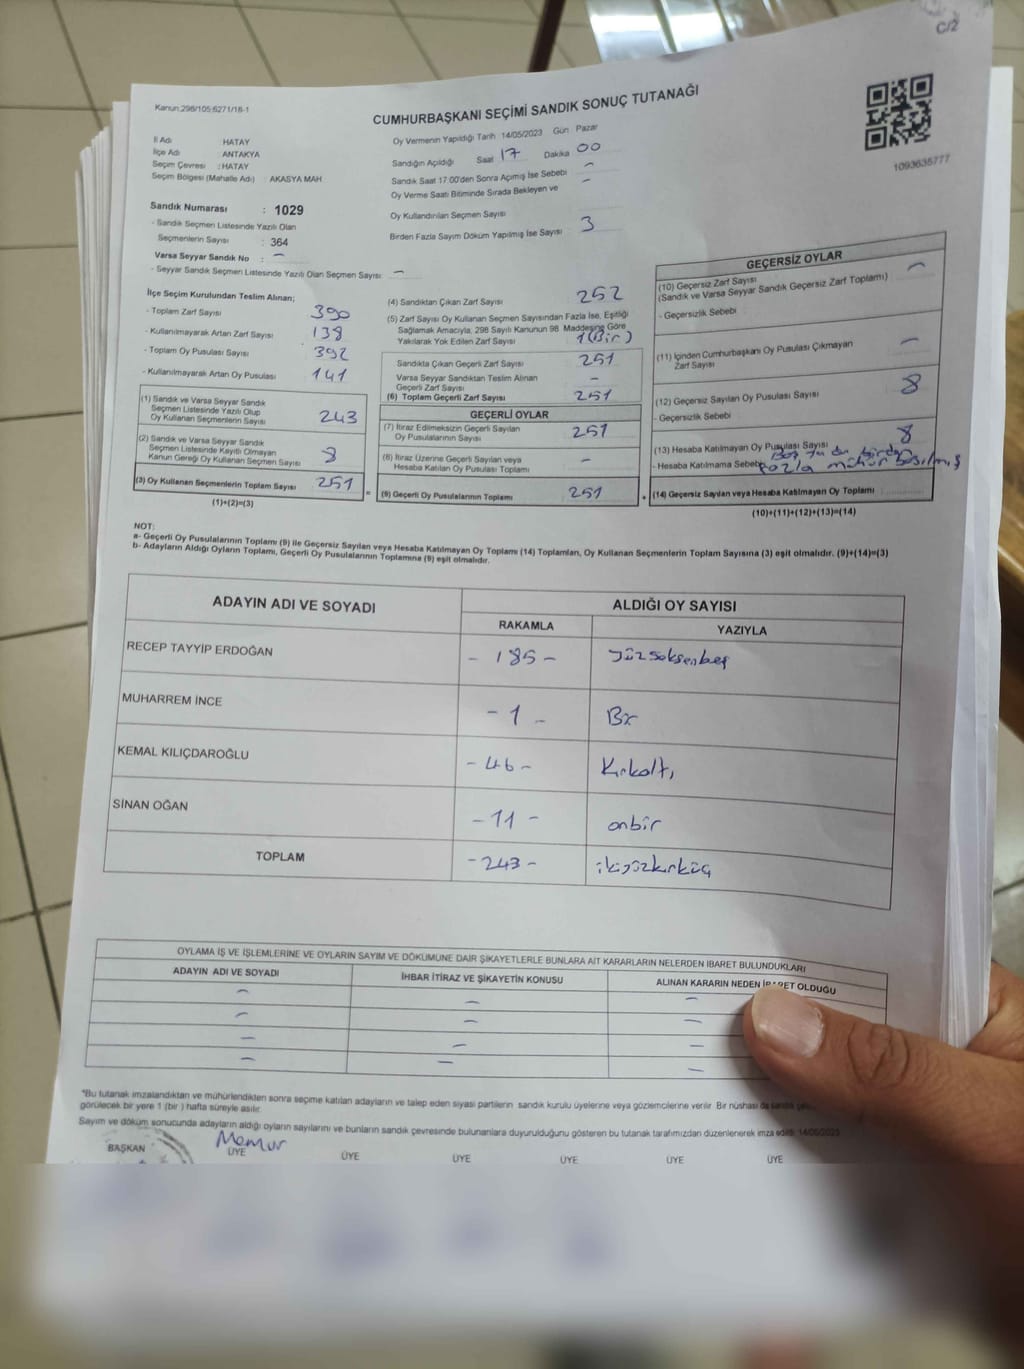 C/2
Kanun:298/105;6271/18-1
CUMHURBAŞKANI SEÇİMİ SANDIK SONUÇ TUTANAĞI
1093635777
İl Adı : HATAY
İlçe Adı : ANTAKYA
Seçim Çevresi : HATAY
Seçim Bölgesi (Mahalle Adı) : AKASYA MAH
Oy Vermenin Yapıldığı Tarih 14/05/2023 Gün Pazar
Sandığın Açıldığı Saat 17 Dakika 00
Sandık Saat 17:00'den Sonra Açımış İse Sebebi –
Oy Verme Saati Bitiminde Sırada Bekleyen ve –
Oy Kullandırılan Seçmen Sayısı
Birden Fazla Sayım Döküm Yapılmış İse Sayısı 3
Sandık Numarası : 1029
- Sandık Seçmen Listesinde Yazılı Olan
Seçmenlerin Sayısı : 364
Varsa Seyyar Sandık No : –
- Seyyar Sandık Seçmen Listesinde Yazılı Olan Seçmen Sayısı : –
İlçe Seçim Kurulundan Teslim Alınan;
- Toplam Zarf Sayısı 390
- Kullanılmayarak Artan Zarf Sayısı 138
- Toplam Oy Pusulası Sayısı 392
- Kullanılmayarak Artan Oy Pusulası 141
(1) Sandık ve Varsa Seyyar Sandık
Seçmen Listesinde Yazılı Olup
Oy Kullanan Seçmenlerin Sayısı 243
(2) Sandık ve Varsa Seyyar Sandık
Seçmen Listesinde Kayıtlı Olmayan
Kanun Gereği Oy Kullanan Seçmen Sayısı 8
(3) Oy Kullanan Seçmenlerin Toplam Sayısı 251
(1)+(2)=(3)
(4) Sandıktan Çıkan Zarf Sayısı 252
(5) Zarf Sayısı Oy Kullanan Seçmen Sayısından Fazla İse, Eşitliği
Sağlamak Amacıyla, 298 Sayılı Kanunun 98. Maddesine Göre
Yakılarak Yok Edilen Zarf Sayısı 1(Bir)
Sandıkta Çıkan Geçerli Zarf Sayısı 251
Varsa Seyyar Sandıktan Teslim Alınan
Geçerli Zarf Sayısı –
(6) Toplam Geçerli Zarf Sayısı 251
GEÇERLİ OYLAR
(7) İtiraz Edilmeksizin Geçerli Sayılan
Oy Pusulalarının Sayısı 251
(8) İtiraz Üzerine Geçerli Sayılan veya
Hesaba Katılan Oy Pusulası Toplamı –
= (9) Geçerli Oy Pusulalarının Toplamı 251 +
GEÇERSİZ OYLAR
(10) Geçersiz Zarf Sayısı –
(Sandık ve Varsa Seyyar Sandık Geçersiz Zarf Toplamı)
- Geçersizlik Sebebi
(11) İçinden Cumhurbaşkanı Oy Pusulası Çıkmayan
Zarf Sayısı –
(12) Geçersiz Sayılan Oy Pusulası Sayısı 8
- Geçersizlik Sebebi
(13) Hesaba Katılmayan Oy Pusulası Sayısı 8
- Hesaba Katılmama Sebebi birden
fazla mühür basılmış
(14) Geçersiz Sayılan veya Hesaba Katılmayan Oy Toplamı
(10)+(11)+(12)+(13)=(14)
NOT:
a- Geçerli Oy Pusulalarının Toplamı (9) ile Geçersiz Sayılan veya Hesaba Katılmayan Oy Toplamı (14) Toplamları, Oy Kullanan Seçmenlerin Toplam Sayısına (3) eşit olmalıdır. (9)+(14)=(3)
b- Adayların Aldığı Oyların Toplamı, Geçerli Oy Pusulalarının Toplamına (9) eşit olmalıdır.
ADAYIN ADI VE SOYADI ALDIĞI OY SAYISI
RAKAMLA YAZIYLA
RECEP TAYYİP ERDOĞAN - 185 - Yüzseksenbeş
MUHARREM İNCE - 1 - Bir
KEMAL KILIÇDAROĞLU - 46 - Kırkaltı
SİNAN OĞAN - 11 - onbir
TOPLAM - 243 - ikiyüzkırküç
OYLAMA İŞ VE İŞLEMLERİNE VE OYLARIN SAYIM VE DÖKÜMÜNE DAİR ŞİKAYETLERLE BUNLARA AİT KARARLARIN NELERDEN İBARET BULUNDUKLARI
ADAYIN ADI VE SOYADI İHBAR İTİRAZ VE ŞİKAYETİN KONUSU ALINAN KARARIN NEDEN İBARET OLDUĞU
– – –
– – –
– – –
– – –
*Bu tutanak imzalandıktan ve mühürlendikten sonra seçime katılan adayların ve talep eden siyasi partilerin sandık kurulu üyelerine veya gözlemcilerine verilir. Bir nüshası da sandık
görülecek bir yere 1 (bir) hafta süreyle asılır.
Sayım ve döküm sonucunda adayların aldığı oyların sayılarını ve bunların sandık çevresinde bulunanlara duyurulduğunu gösteren bu tutanak tarafımızdan düzenlenerek imza edildi. 14/05/2023
Memur
BAŞKAN ÜYE ÜYE ÜYE ÜYE ÜYE ÜYE